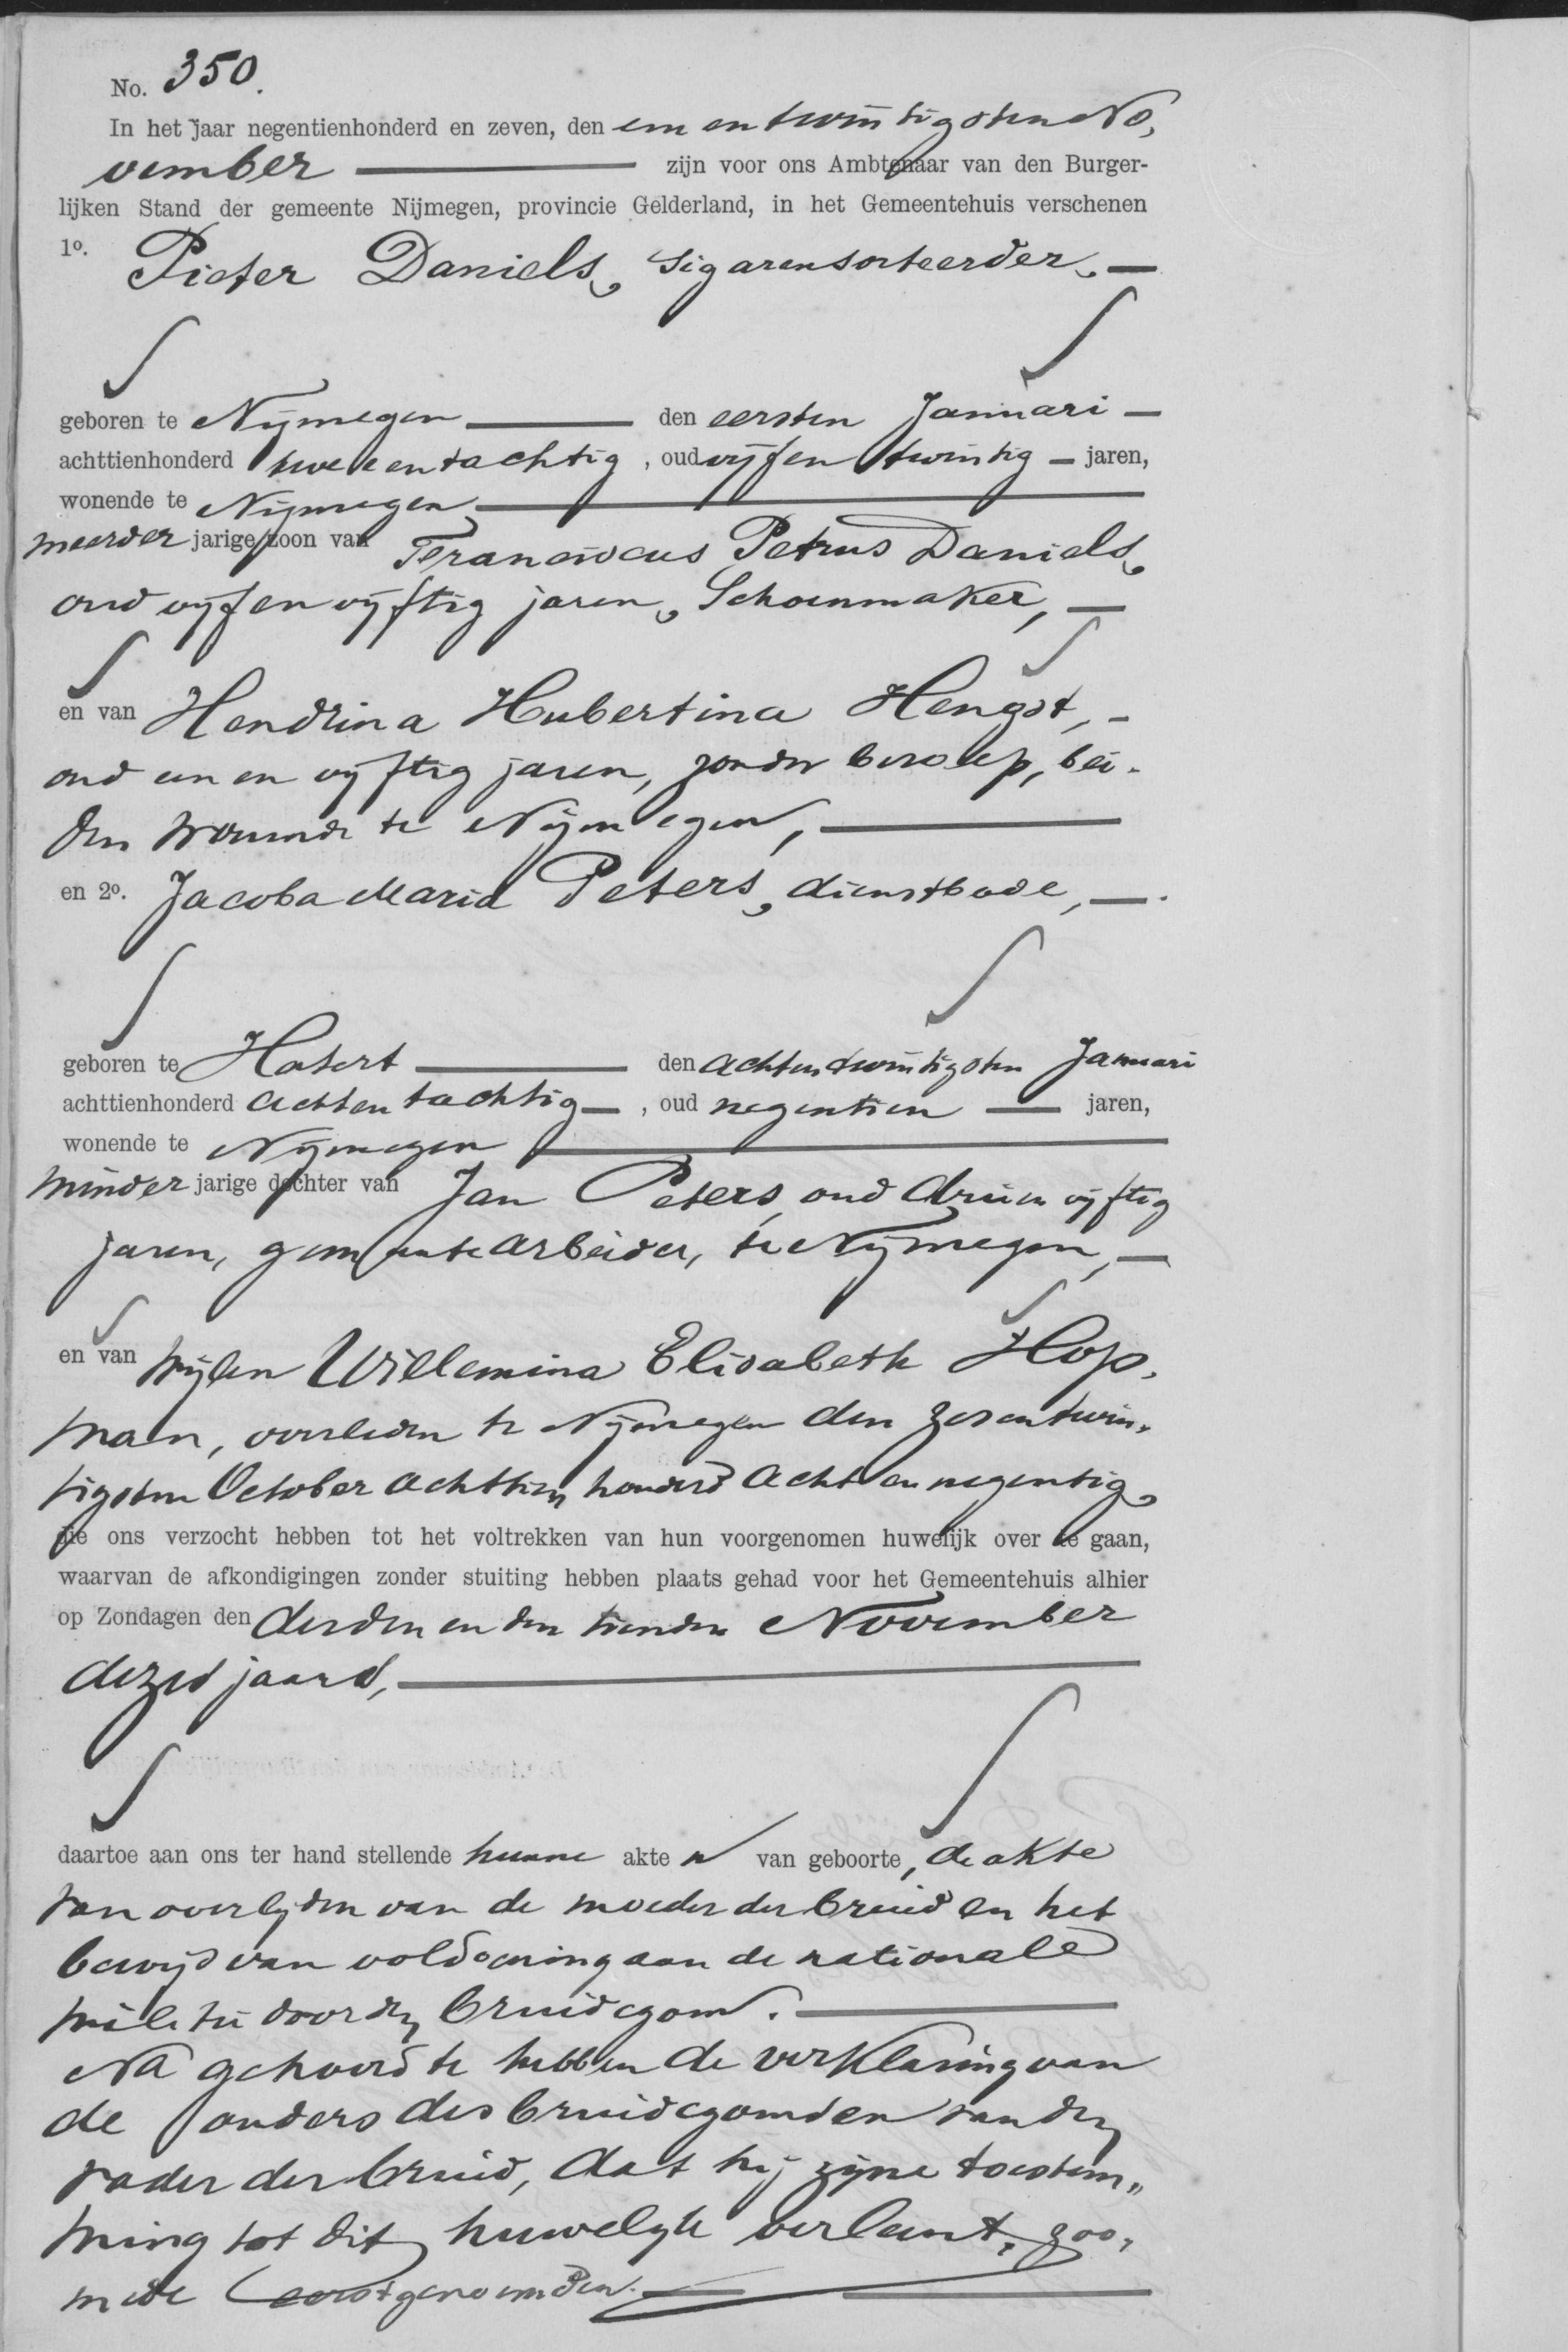 No. 350.
In het jaar negentienhonderd en zeven, den een en twintigsten No,
vember zijn voor ons Ambtenaar van den Burger-
lijken Stand der gemeente Nijmegen, provincie Gelderland, in het Gemeentehuis verschenen
1o. Pieter Daniels, sigarensorteerder,
geboren te Nijmegen den eersten Januari
achttienhonderd twee en tachtig, oud vijf en twintig jaren,
wonende te Nijmegen
meerder jarige zoon van Franciscus Petrus Daniels,
oud vijf en vijftig jaren, Schoenmaker,
en van Hendrina Hubertina Hengst,
oud een en vijftig jaren, zonder beroep, bei-
den wonende te Nijmegen,
en 2o. Jacoba Maria Peters, dienstbode,
geboren te Hatert den achtentwintigsten Januari
achttienhonderd achten tachtig, oud negentien jaren,
wonende te Nijmegen
minder jarige dochter van Jan Peters, oud drie en vijftig
jaren, gemeente arbeider, te Nijmegen,
en van wijlen Willemina Elisabeth Hop,
man, overleden te Nijmegen den zesentwin,
tigsten October achttien honderd acht en negentig,
die ons verzocht hebben tot het voltrekken van hun voorgenomen huwelijk over te gaan,
waarvan de afkondigingen zonder stuiting hebben plaats gehad voor het Gemeentehuis alhier
op Zondagen den derden en den tienden November
dezes jaars,
daartoe aan ons ter hand stellende hunne akte n van geboorte, de akte
van overlijden van de moeder der bruid en het
bewijs van voldoening aan de nationale
militie door den bruidegom.
Na gehoord te hebben de verklaring van
de ouders des bruidegoms en van den
vader der bruid, dat hij zijne toestem„
ming tot dit huwelijk verleent, zoo,
mede eerstgenoemden.